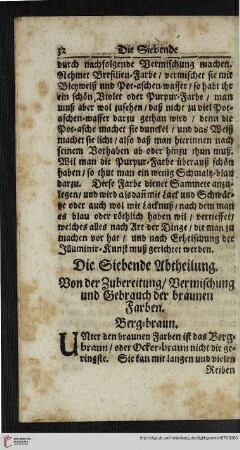 32 Die Siebende
durch nachfolgende Vermischung machen.
Nehmet Bresilien-Farbe / vermischet sie mit
Bleyweiß und Pot-aschen-wasser / so habt ihr
ein schön Violet oder Purpur-Farbe / man
muß aber wol zusehen / daß nicht zu viel Pot-
aschen-wasser darzu gethan wird / denn die
Pot-asche machet sie dunckel / und das Weiß
machet sie licht / also daß man hierinnen nach
seinem Vorhaben ab oder hinzu thun muß.
Will man die Purpur-Farbe überauß schön
haben / so thut man ein wenig Schmaltz-blau
darzu. Diese Farbe dienet Sammete anzu-
legen / und wird alsdann mit Lack und Schwär-
tze oder auch wol mit Lack nuß / nach dem man
es blau oder röthlich haben wil / vertieffet /
welches alles nach Art der Dinge / die man zu
machen vor hat / und nach Erheischung der
Illuminir-Kunst muß gerichtet werden.
Die Siebende Abtheilung.
Von der Zubereitung / Vermischung
und Gebrauch der braunen
Farben.
Berg-braun.
UNter den braunen Farben ist das Berg-
braun / oder Ocker-braun nicht die ge-
ringste. Sie kan mit langen und vielen
Reiben